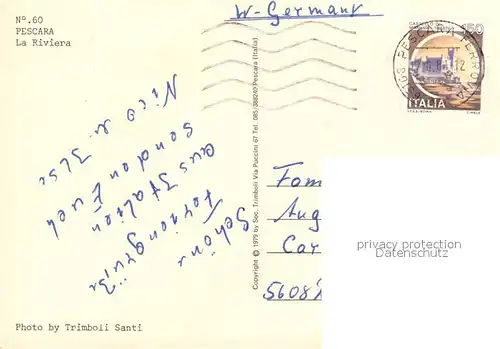 W-Germany
N°.60
PESCARA
La Riviera
CASTELLO
150
PESCARA FERROVIA
12
ITALIA
Schöne
aus Italien
senden Euch
Fam
Aug
Car
privacy protection
Datenschutz
5608
Copyright © 1979 by Soc. Trimboli Via Puccini 67 Tel. 085/388240 Pescara (Italia)
Photo by Trimboli Santi